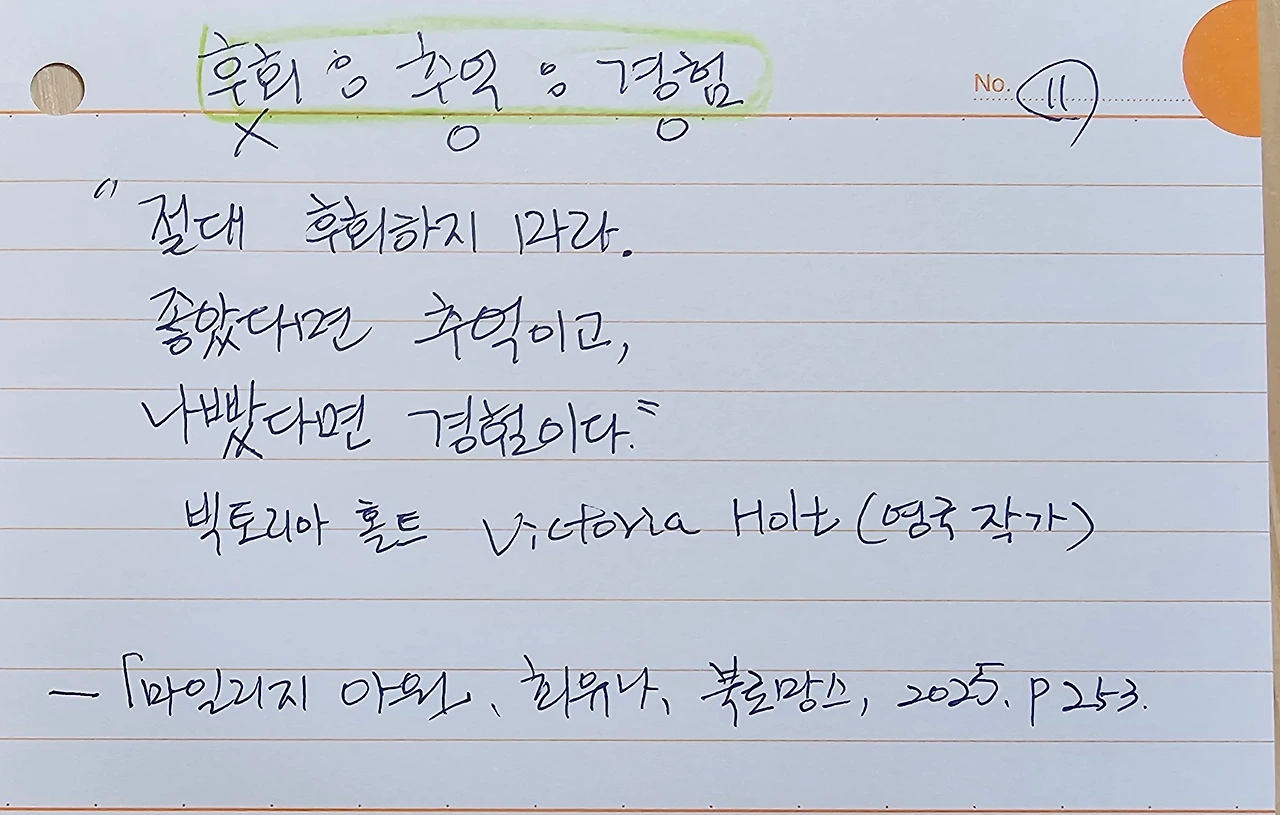 후회 : 추억 : 경험
No. 11
X O O
"절대 후회하지 마라.
좋았다면 추억이고,
나빴다면 경험이다."
빅토리아 홀트 Victoria Holt (영국 작가)
- 「마일리지 아워, 희유나, 북로망스, 2025. p 253.